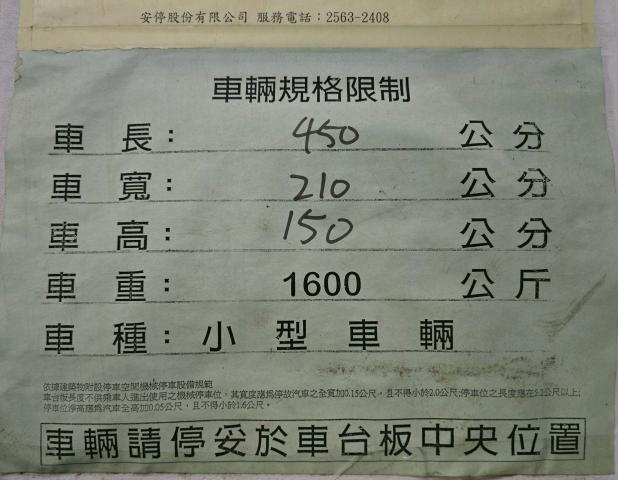 安停股份有限公司 服務電話：2563-2408
車輛規格限制
車長： 450 公分
車寬： 210 公分
車高： 150 公分
車重： 1600 公斤
車種：小型車輛
依據建築物附設停車空間機械停車設備規範
車台板長度不供乘車人進出使用之機械停車位，其寬度應為停放汽車之全寬加0.15公尺，且不得小於2.0公尺;停車位之長度應在5.2公尺以上;
停車位淨高應為汽車全高加0.05公尺，且不得小於1.6公尺。
車輛請停妥於車台板中央位置